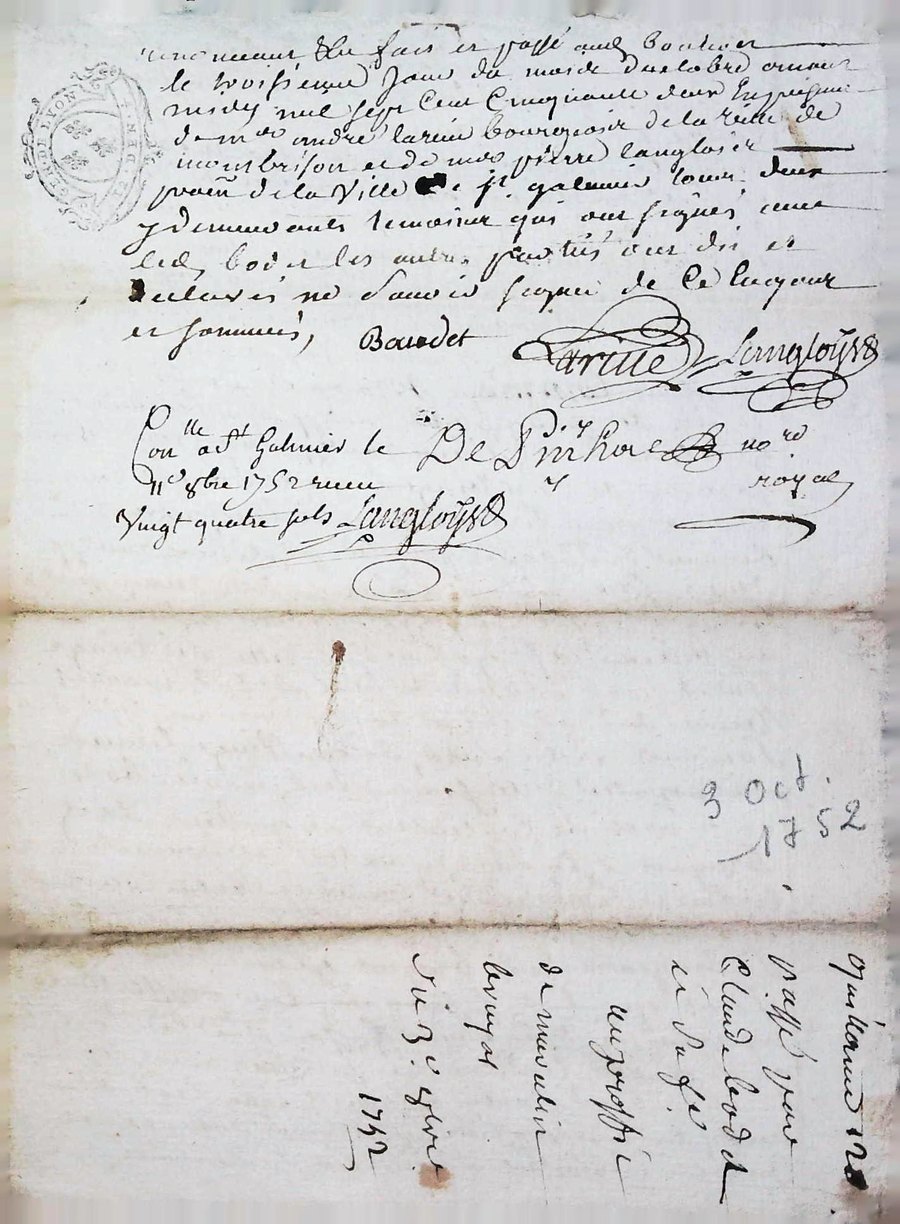 fait et passé aud Bouthéon
le troisième jour du mois d'octobre avant
midy mil sept cent cinquante deux En présence
de mre andré larue bourgeois de la ville de
montbrison et de mre pierre langlois
de la ville de st galmier tous deux
y demeurants temoins qui ont signés avec
led bodet les autres parties ont dit et
declarés ne savoir signer de ce enquis
et sommés, Baudet Larüe Langloys
Conlle a St Galmier le
11e 8bre 1752 receu nore
royal
Vingt quatre sols Langloys
3 Oct.
1752
quittance 120
passé par
Claude bodet
et sa fe
au proffit
de mathelin
bruyat
du 3e 8bre
1752